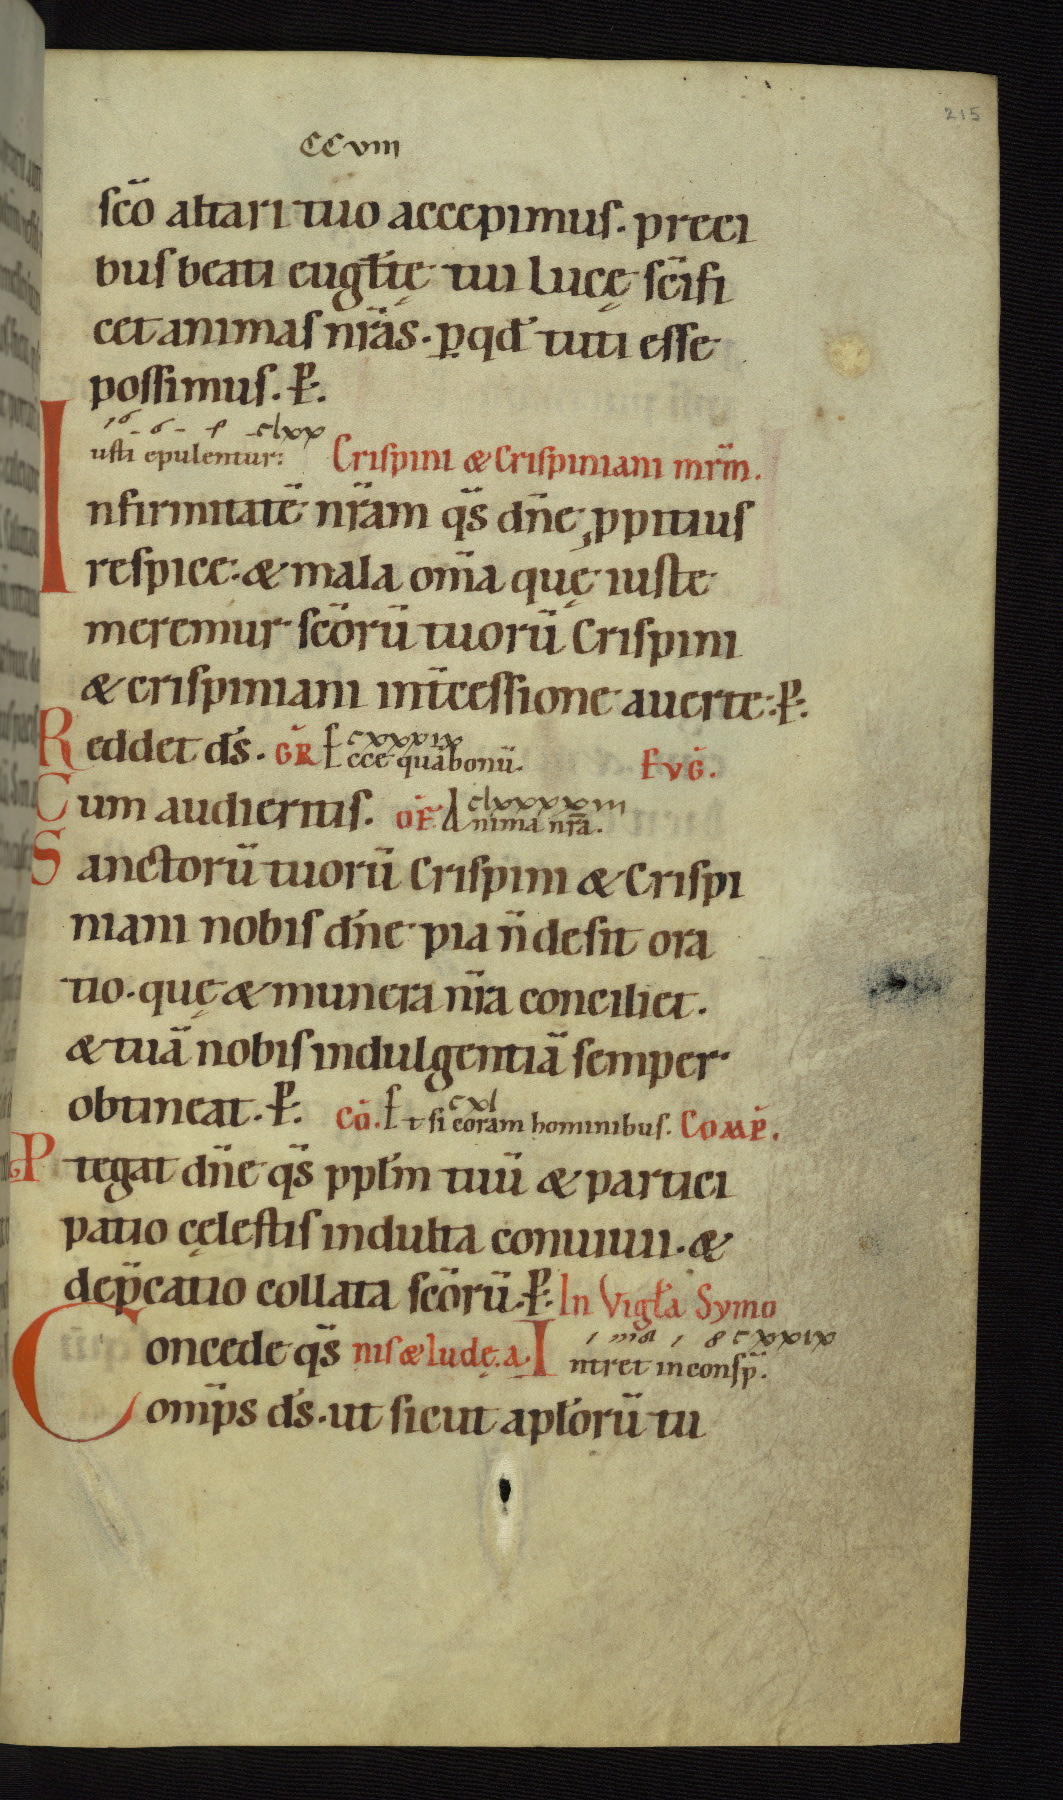 215
CCVIII
sc̄o altari tuo accepimus. preci
bus beati eugl̄ię tui lucę sc̄ifi
cet animas nr̄as. ꝑqd̄ tuti esse
possimus. P̄.
clxx
Iusti epulentur: Crispini & Crispiniani mr̄m.
Infirmitatē nr̄am q̄s dn̄e ꝓpitius
respice: & mala om̄a quę iuste
meremur sc̄orū tuorū Crispini
& crispiniani int̄cessione auerte: P̄.
cxxxix
Reddet dс̄. GR̄ Ecce quā bonū. EVḠ.
clxxxxiii
Cum audieritis. OF̄ Anima nr̄a.
Sanctorū tuorū Crispini & Crispi
niani nobis dn̄e pia n̄ desit ora
tio. quę & munera nr̄a conciliet.
& tuā nobis indulgentiā semper
cxl
obtineat. P̄. CŌ. Et si coram hominibus. COMP̄.
Ptegat dn̄e q̄s ppl̄m tuū & partici
patio cęlestis indulta conuiuii. &
dep̄catio collata sc̄orū. P̄. In Vigl̄a Symo
cxxix
Concede q̄s nis & ludę. a. Intret in consp̄.
om̄ps ds̄. ut sicut apl̄orū tu